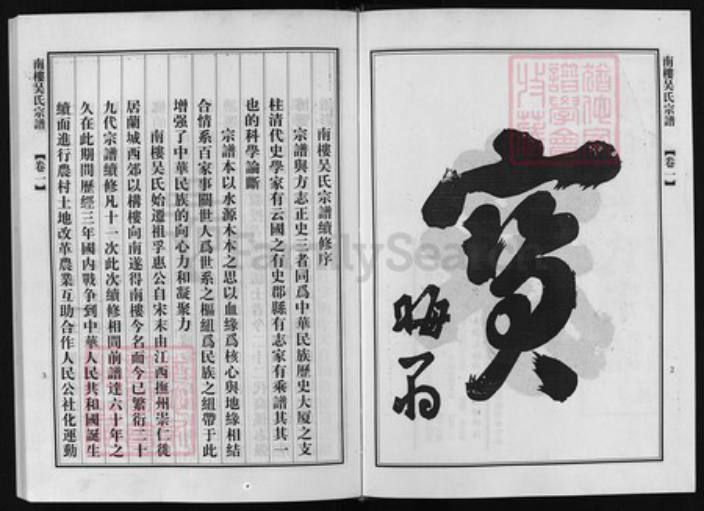 南樓吴氏宗譜
【卷一】
2
寳
晦翁
FamilySearch
南樓吴氏宗譜
【卷一】
3
南樓吴氏宗譜續修序
宗譜與方志正史三者同爲中華民族歷史大厦之支
柱清代史學家有云國之有史郡縣有志家有乘譜其其一
也的科學論斷
宗譜本以水源木本之思以血緣爲核心與地緣相結
合情系百家事關世人爲世系之樞紐爲民族之紐帶于此
增强了中華民族的向心力和凝聚力
南樓吴氏始遷祖孚惠公自宋末由江西撫州崇仁徙
居蘭城西郊以構樓向南遂得南樓今名而今已繁衍二十
九代宗譜續修凡十一次此次續修相間前譜達六十年之
久在此期間歷經三年國内戰争到中華人民共和國誕生
續而進行農村土地改革農業互助合作人民公社化運動